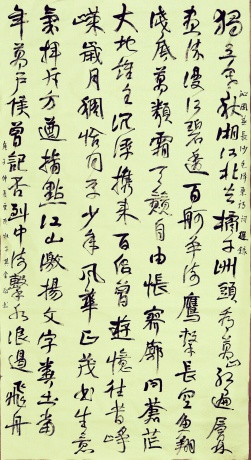 獨立寒秋湘江北去橘子洲頭看萬山紅遍層林
盡染漫江碧透百舸爭流鷹擊長空魚翔
淺底萬類霜天競自由悵寥廓問蒼茫
大地誰主沉浮攜來百侶曾遊憶往昔崢
嶸歲月稠恰同學少年風華正茂書生意
氣揮斥方遒指點江山激揚文字糞土當
年萬戶侯曾記否到中流擊水浪遏飛舟
沁園春長沙毛澤東詩詞